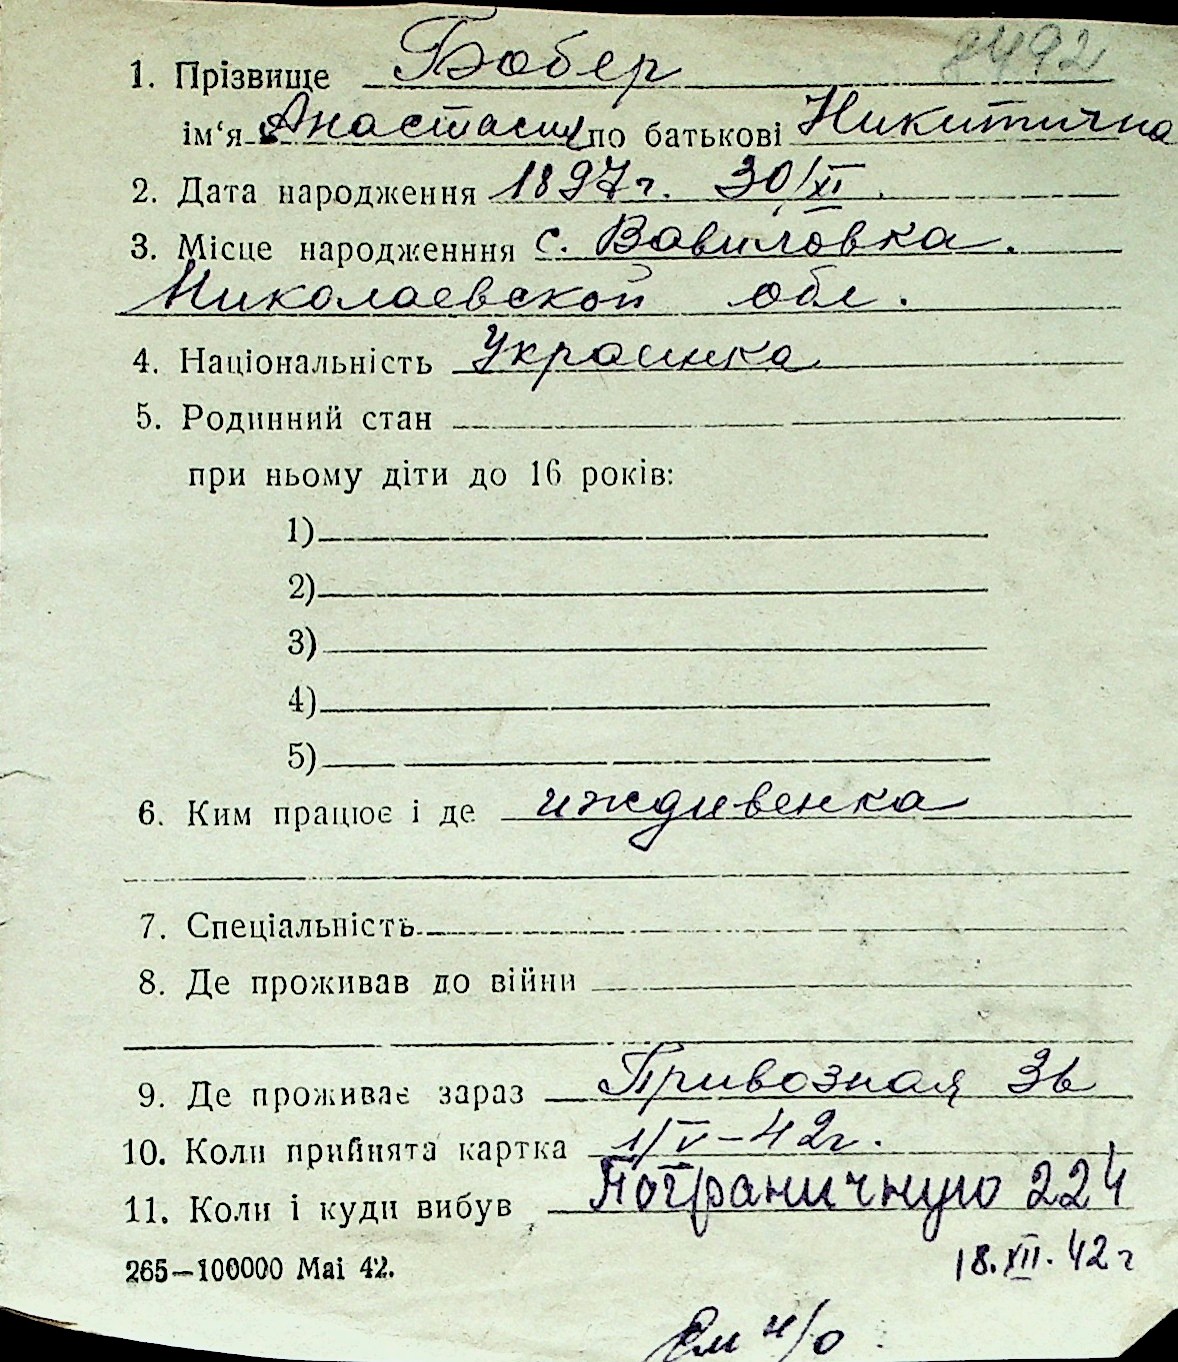 8492
1. Прізвище Бобер
ім‘я Анастасия по батькові Никитична
2. Дата народження 1897г. 30/XI.
3. Місце народженння с. Вавиловка.
Николаевской обл.
4. Національність Украинка
5. Родинний стан
при ньому діти до 16 років:
1)
2)
3)
4)
5)
6. Ким працює і де иждивенка
7. Спеціальність
8. Де проживав до війни
9. Де проживає зараз Привозная 3в
10. Коли прийнята картка 1/V–42г.
11. Коли і куди вибув Пограничную 224
18.XII.42г
265—100000 Mai 42.